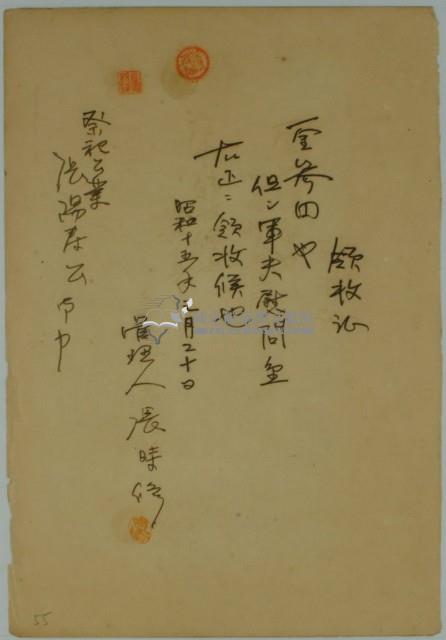 領收証
金参円也
但シ軍夫慰問金
右正ニ領收候也
昭和十五年三月二十日
管理人 張時修
祭祀公業
張陽春公
55